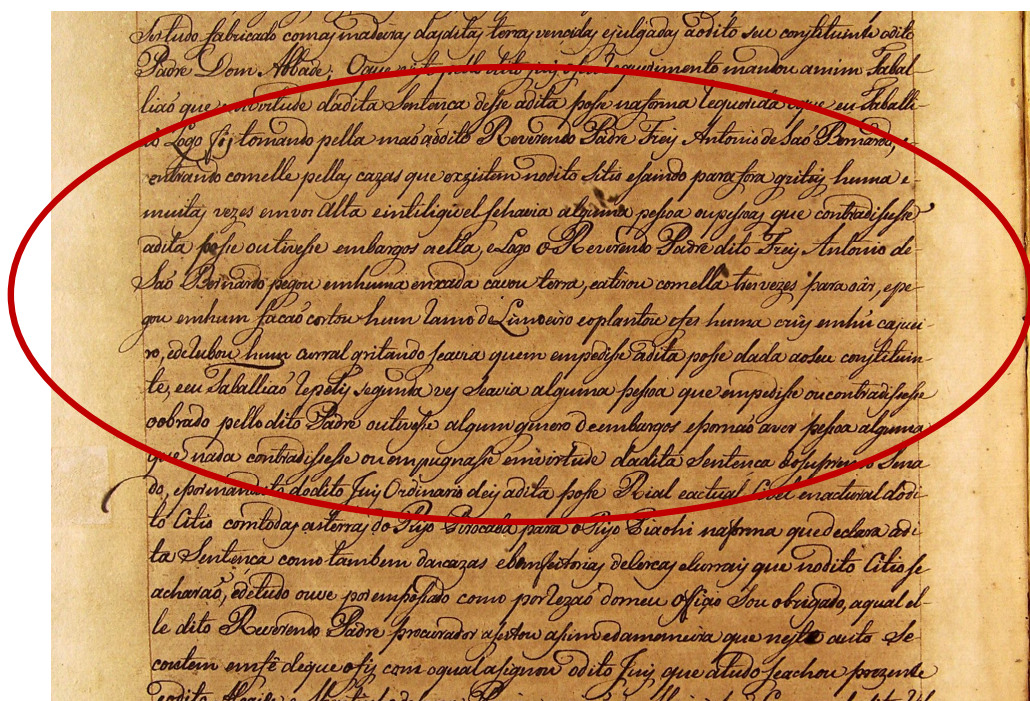 Sortudo fabricado comas madeiras daditas terras vencidas ejulgadas aodito seu constituinte odito
Padre Dom Abbade; Oque visto pello dito juis esse requerimento mandou amim Tabal-
liaõ que emvirtude dadita Sentenca desse adita posse naforma requerida eque eu Taballi-
aõ Logo fis tomando pella maõ aodito Reverendo Padre Frey Antonio de Saõ Bernardo, e-
entrando comelle pellas cazas que existem nodito Sitio esaindo para fora gritey huma e-
muitas vezes emvos Alta eintiligivel sehavia alguma pessoa oupessoas que contradisesse
adita posse outivesse embargos aella, eLogo o Reverendo Padre dito Frey Antonio de
Saõ Bernardo pegou emhuma enxada cavou terra, eatirou comella tres vezes para oâr, epe-
gou emhum facaõ cortou hum Ramo de Limoeiro eoplantou efes huma crus emhũ cajuei-
ro, ederubou hum curral gritando seavia quem empedisse adita posse dada aoseu constituin-
te, eeu Taballiaõ Repety segunda ves seavia alguma pessoa que empedisse oucontradisesse
oobrado pellodito Padre outivesse algum ginero deembargos epornaõ aver pessoa alguma
que nada contradisesse ou empugnasse emvirtude dadita Sentenca doSupremo Sena
do, epormandado dodito Juis Ordinario dey adita posse Rial eactual Civel enactural dodi-
to Citio comtodas asterras do Rijo Pirocaba para o Rijo naforma quedeclara adi-
ta Sentenca como tambem dascazas ebemfeitorias deSercas eCurrais que nodito Citio se
acharaõ, edetudo ouve porempossado como porRezaõ domeu officio Sou obrigado, aqual el-
le dito Reverendo Padre procurador aseitou asim edamaneira que neste auto Se-
contem emfê deque ofis com oqual asignou odito Juis que atudo Seachou prezente